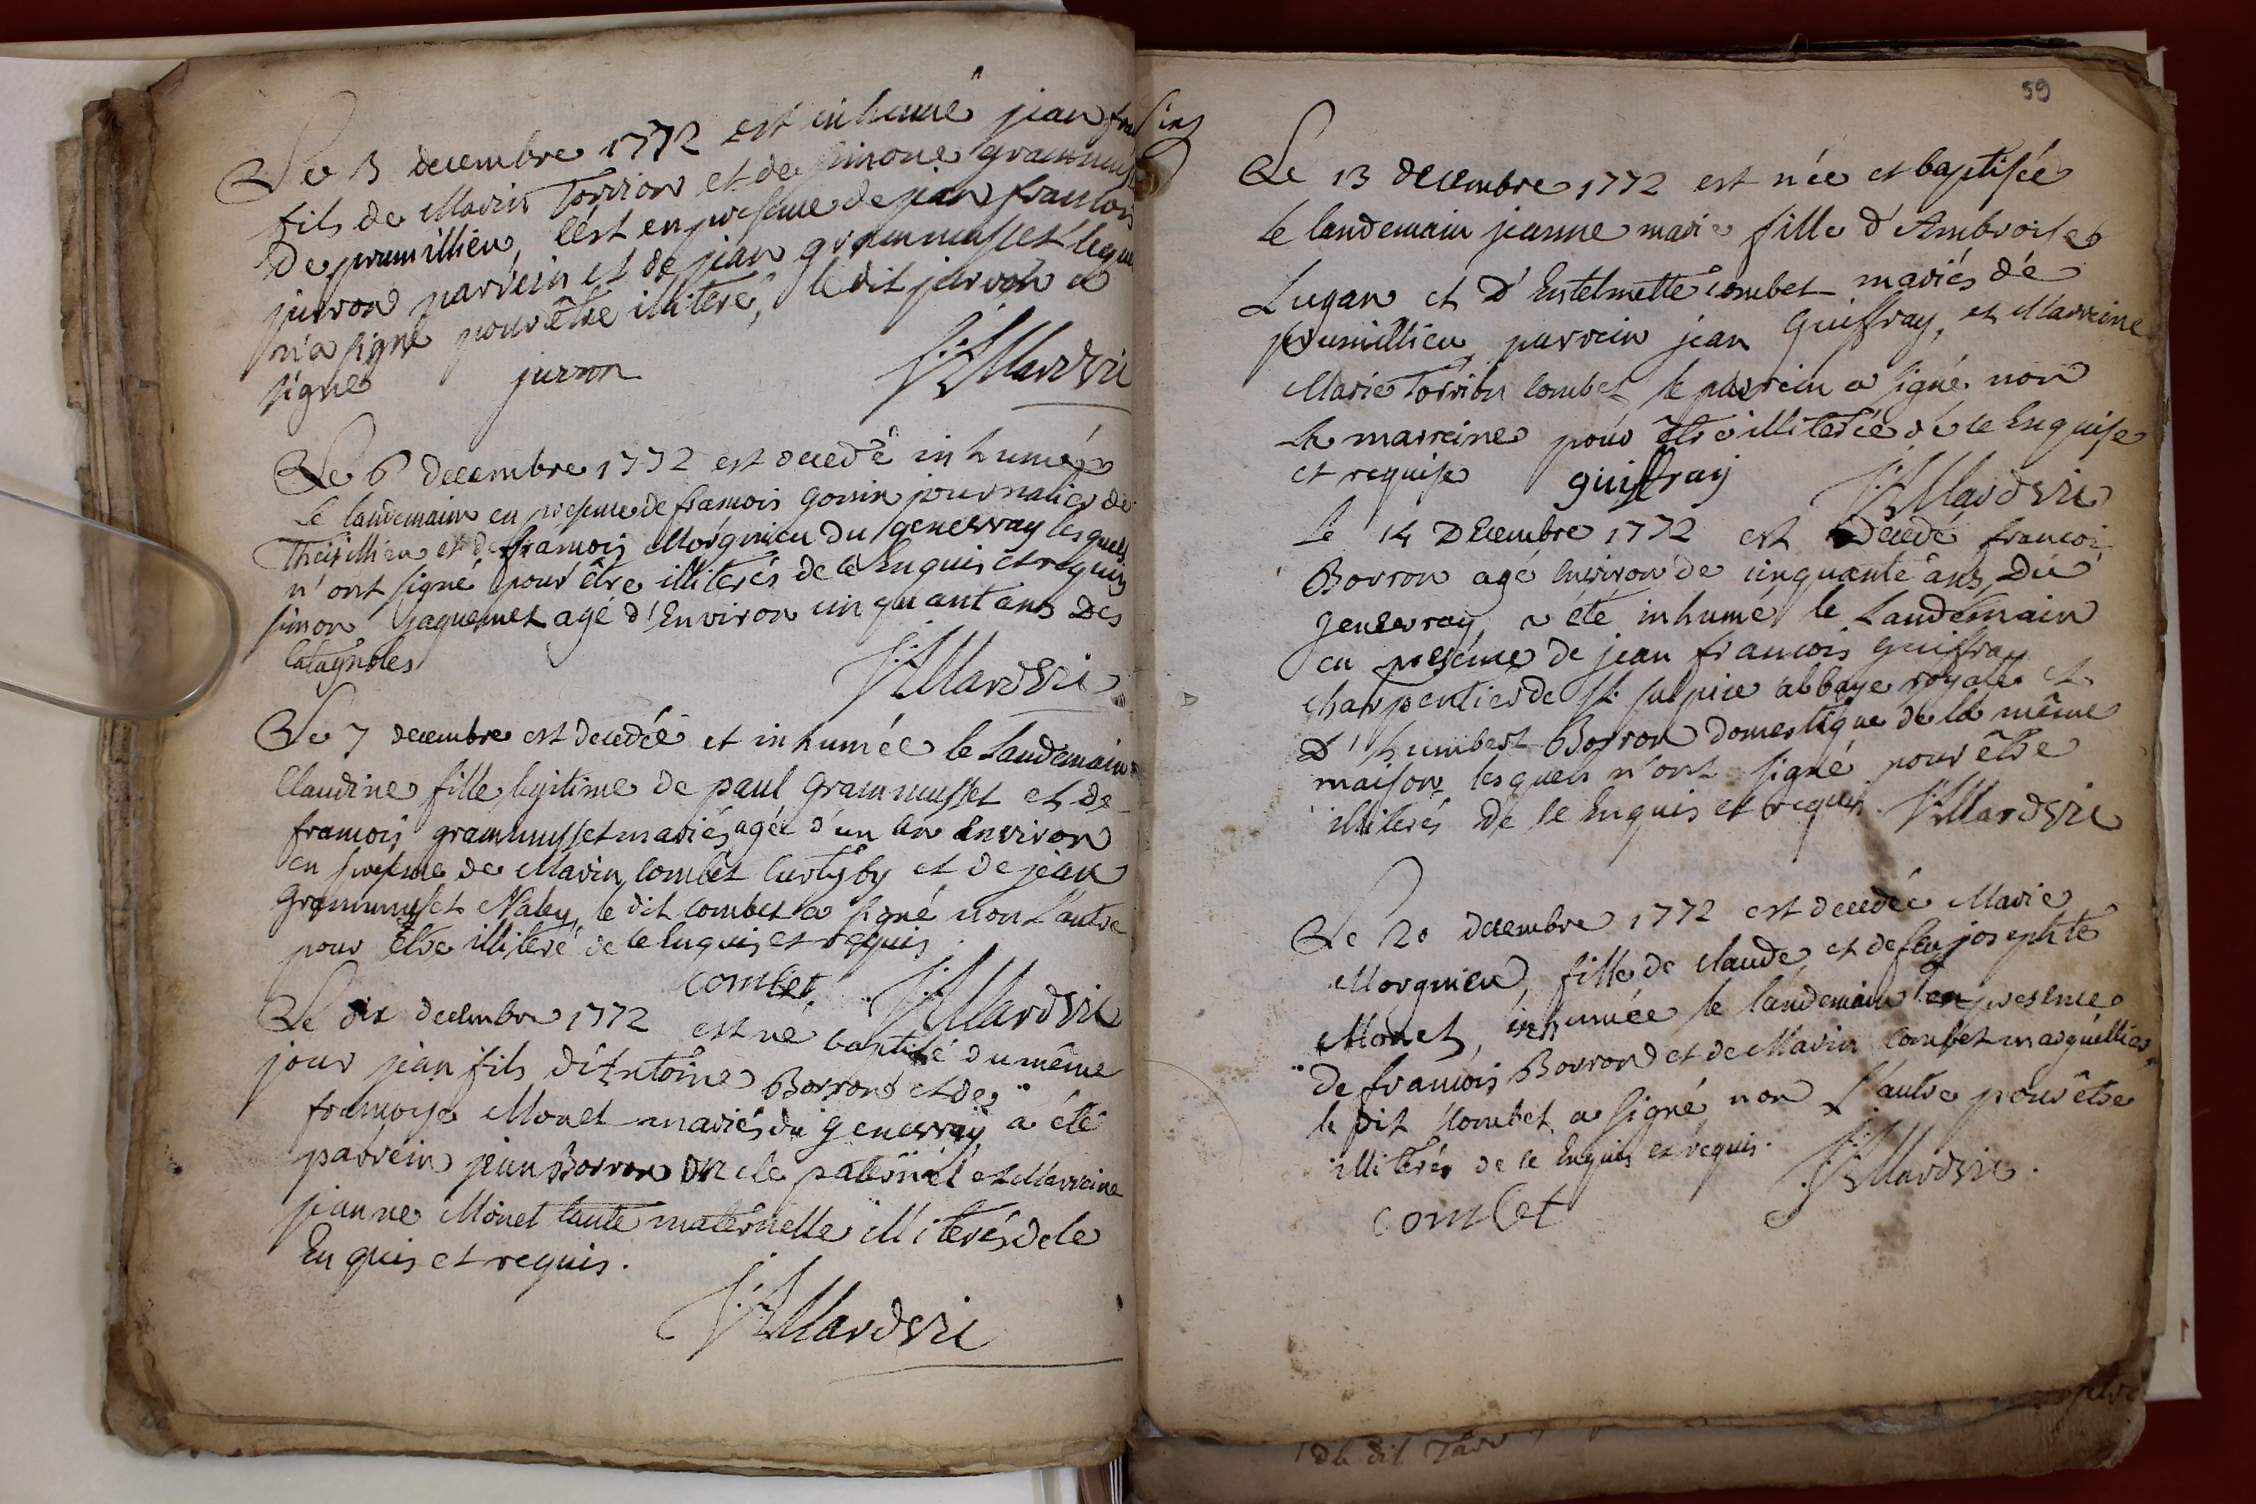 Le 3 decembre 1772 est inhumé jean fran
fils de Marin Torrion et de simone grammuss
de prumillieu, c'est en presence de jean francois
jurron parrein et de jean grammusset lequel
n'a signé pour être illiteré, le dit jurron a
signé jurron Villardzii
Le 6 decembre 1772 est decedé inhumé
le landemain en presence de francois gonin journalier de
Theisillieu et de francois Morgnieu du genevray lesquels
n'ont signé pour être illiterés de ce Enquis et requis
simon jaquemet agé d'Environ cinquant ans Des
Catagnoles Villardzii
Le 7 decembre est decedée et inhumée le landemain
Claudine fille legitime de paul grammusset et de
francois grammusset mariés agée d'un an Environ
en presence de Marin Combet Curtyby et de jean
grammusset Naley, le dit Combet a signé non l'autre
pour être illiteré de ce Enquis et requis
combet Villardzii
Le dix decembre 1772 est né baptisé du même
jour jean fils d'Antoine Borron et de
francoise Monet mariés du genevray a été
parrein jean Borron oncle paternel et Marreine
jeanne Monet tante maternelle illiterés de ce
Enquis et requis.
Villardzii
59
Le 13 decembre 1772 est née et baptisée
le landemain jeanne marie fille d'Ambroise
Lugan et d'Entelmette Combet mariés de
prumillieu, parrein jean Guiffray, et Marreine
Marie Torrion Combet le parrein a signé non
La marreine pour être illiterée de ce Enquise
et requise guiffray Villardzii
Le 14 Decembre 1772 est Decedé francois
Borron agé Environ de cinquante ans, du
genevray, a été inhumé le Landemain
en presence de jean francois guiffray
charpentier de St. sulpice abbaye royale et
d'humbert Borron domestique de la même
maison lesquels n'ont signé pour être
illiterés de ce Enquis et requis. Villardzii
Le 20 decembre 1772 est decedée Marie
Morgnieu, fille de claude et de feu josephte
Monet, inhumée le landemain en presence
de francois Borron et de Marin Combet marguillier
le dit Combet a signé non l'autre pour être
illiterés de ce Enquis et requis.
combet Villardzii